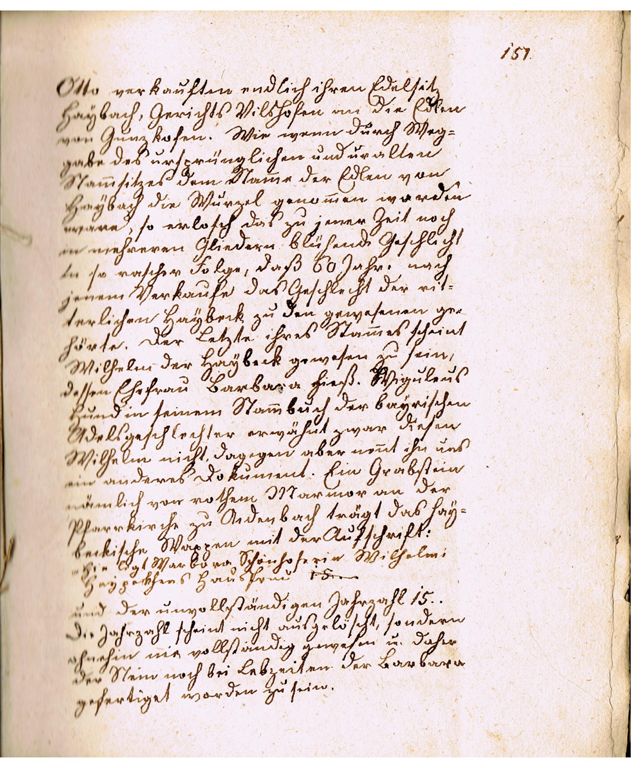 151
Otto verkauften endlich ihren Edelsitz
Haybach, Gerichts Vilshofen an die Edlen
von Gunzkofen. Wie wenn durch Weg=
gabe des ursprünglichen und uralten
Stammsitzes dem Namen der Edlen von
Haybach die Wurzel genommen worden
wäre, so erlosch das zu jener Zeit noch
in mehreren Gliedern blühende Geschlecht
in so rascher Folge, daß 60 Jahr. nach
jenem Verkaufe das Geschlecht der rit=
terlichen Haybeck zu den gewesenen ge=
hörte. Der Letzte ihres Stammes scheint
Wilhelm der Haybeck gewesen zu sein,
dessen Ehefrau Barbara hieß. Wiguleus
Hund in seinem Stammbuch der bayrischen
Adelsgeschlechter erwähnt zwar diesen
Wilhelm nicht, dagegen aber nennt ihn uns
ein anderes Dokument. Ein Grabstein
nämlich von rothem Marmor an der
Pfarrkirche zu Aidenbach trägt das Hay=
beckische Wappen mit der Aufschrift:
"Hie ligt Warbora Schönhoferin Wilhelm:
Heypekhens Hausfrau 15
und der unvollständigen Jahrzahl 15..
Die Jahrzahl scheint nicht ausgelöscht, sondern
ohnehin nie vollständig gewesen u. daher
der Stein noch bei Lebzeiten der Barbara
gefertiget worden zu sein.